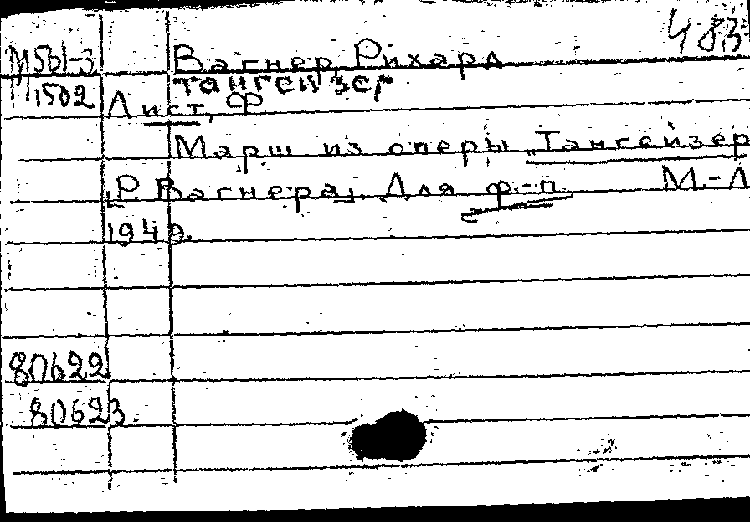 483
М561-3 Вагнер, Рихард
Тангейзер
М1502 Лист, Ф
Марш из оперы „Тангейзер
[Р Вагнера]. Для ф.-п. М.-Л
1949.
80622
80623.